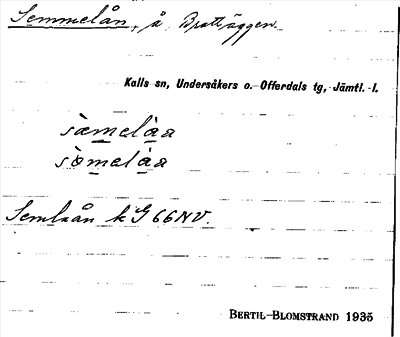 Semmelån, å Brattäggen.
Kalls sn, Undersåkers o. Offerdals tg, Jämtl. l.
sàmelàa
sòmelàa
Semlaån k G 66 NV.
BERTIL BLOMSTRAND 1935